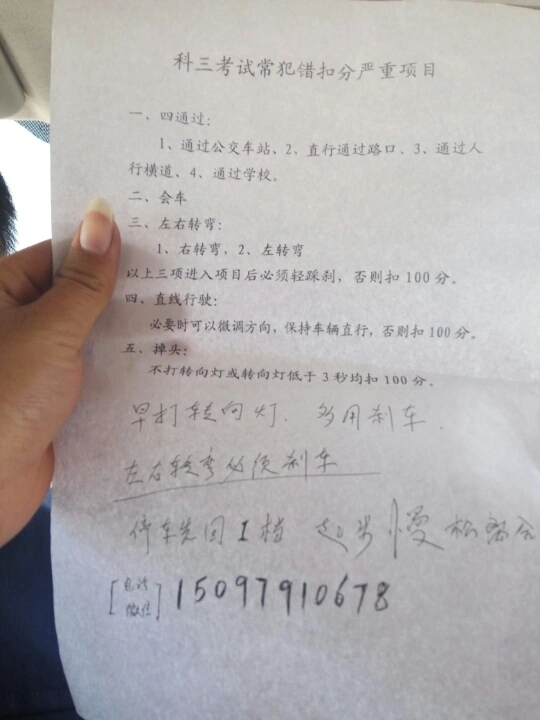 科三考试常犯错扣分严重项目
一、四通过:
1、通过公交车站、2、直行通过路口、3、通过人
行横道、4、通过学校。
二、会车
三、左右转弯:
1、右转弯,2、左转弯
以上三项进入项目后必须轻踩刹,否则扣100分。
四、直线行驶:
必要时可以微调方向,保持车辆直行,否则扣100分。
五、掉头:
不打转向灯或转向灯低于3秒均扣100分.
早打转向灯. 多用刹车.
左右转弯必须刹车
停车先回1档 起步慢松离合
[电话
微信] 15097910678